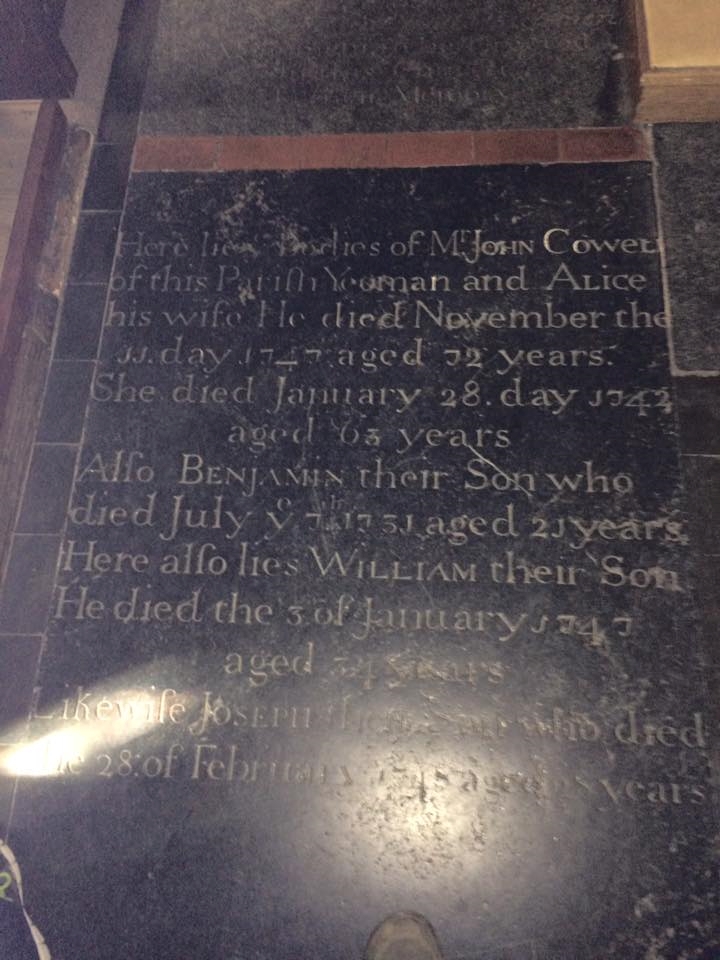 Memory
Here lies Bodies of Mr. JOHN COWEL
of this Pariſh Yeoman and ALICE
his wife He died November the
11. day 1747 aged 72 years.
She died January 28. day 1742
aged 63 years
Alſo BENJAMIN their Son who
died July ye 7th. 1731 aged 21 years
Here alſo lies WILLIAM their Son
He died the 3 of January 1747
aged 34 years
Likewiſe JOSEPH their Son who died
the 28. of February aged years